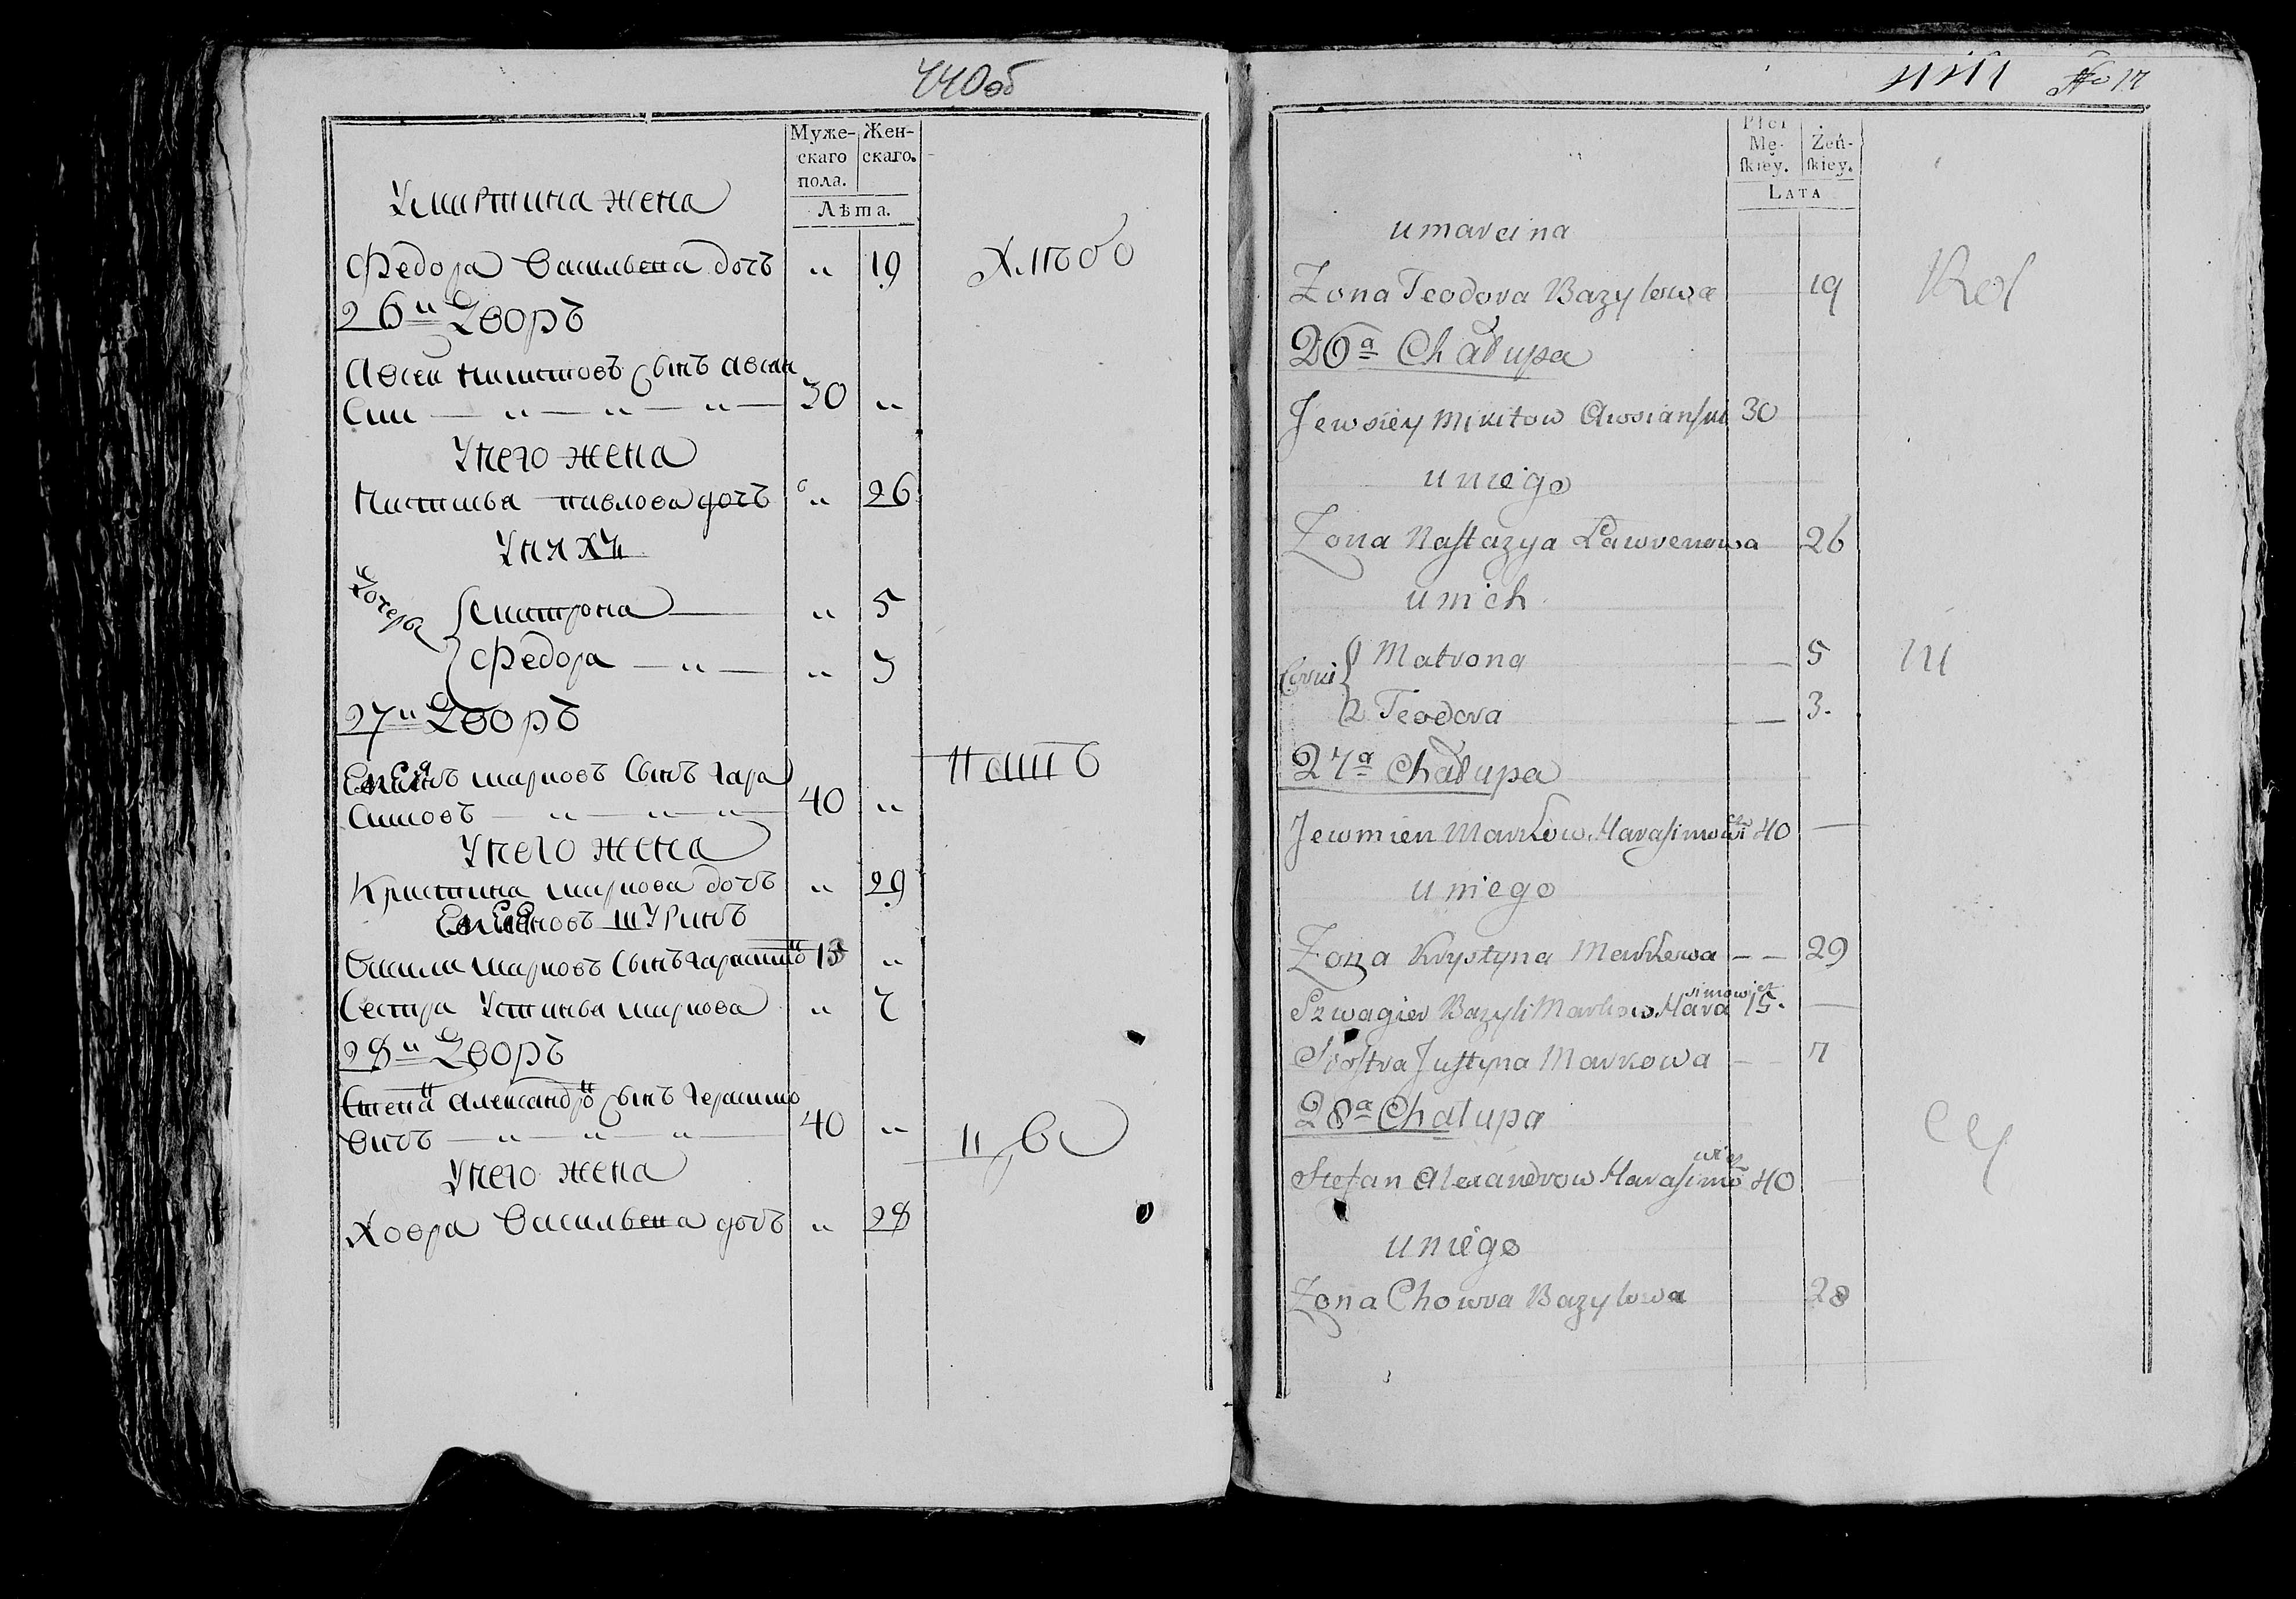 440об
Муже-
скаго
пола.
Жен-
скаго.
Лѣта.
Умартина жена
Федора Васильева дочь " 19
26й Дворъ
Авсей никитовъ сынъ авсян
30 "
Унего жена
настасья павлова дочь " 26
Унихъ
Дочери
Матрона " 5
Федора " 3
27й Дворъ
марковъ сынъ гара
симовъ 40 "
Унего жена
Кристина маркова дочь " 29
шуринъ
Василий марковъ сынъ 15 "
Сестра Устинья маркова " 7
28й Дворъ
Степанъ александровъ сынъ герасимо
вичъ 40 "
Унего жена
Ховра Васильева дочь " 28
441 No 17
Płci
Mę-
ſkiey.
Żeń-
ſkiey.
LATA
u marcina
Zona Teodora Bazylowa 19
26a Chałupa
Jewsiey Mikitow Awsianski 30
u niego
Zona Nastazya Lawrenowa 26
u nich
Corki
1 Matrona 5
2 Teodora 3.
27a Chałupa
Jewmien Markow Harasimowicz 40
u niego
Zona Krystyna Markowa 29
Szwagier Bazyli Markow Harasimowicz 15.
Siostra Justyna Markowa 7
28a Chalupa
Stefan Alexandrow Harasimowicz 40
u niego
Zona Chowra Bazylowa 28